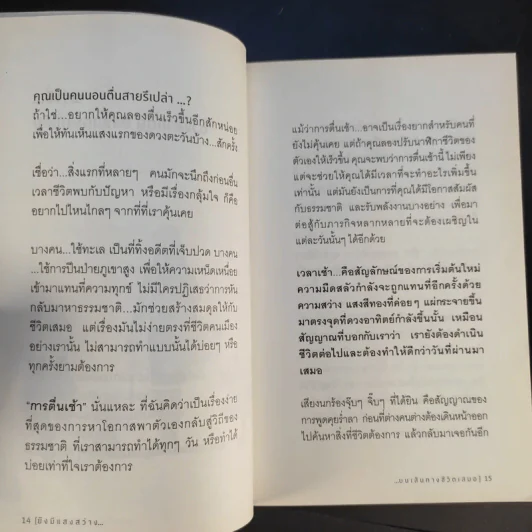 คุณเป็นคนนอนตื่นสายรึเปล่า ...?
ถ้าใช่...อยากให้คุณลองตื่นเร็วขึ้นอีกสักหน่อย
เพื่อให้ทันเห็นแสงแรกของดวงตะวันบ้าง...สักครั้ง
เชื่อว่า...สิ่งแรกที่หลายๆ คนมักจะนึกถึงก่อนอื่น
เวลาชีวิตพบกับปัญหา หรือมีเรื่องกลุ้มใจ ก็คือ
อยากไปไหนไกลๆ จากที่ที่เราคุ้นเคย
บางคน...ใช้ทะเล เป็นที่ทิ้งอดีตที่เจ็บปวด บางคน
...ใช้การปีนป่ายภูเขาสูง เพื่อให้ความเหนื่อย
เข้ามาแทนที่ความทุกข์ ไม่มีใครปฏิเสธว่าการหัน
กลับมาหาธรรมชาติ...มักช่วยสร้างสมดุลให้กับ
ชีวิตเสมอ แต่เรื่องมันไม่ง่ายตรงที่ชีวิตคนเมือง
อย่างเรานั้น ไม่สามารถทำแบบนั้นได้บ่อยๆ หรือ
ทุกครั้งยามต้องการ
"การตื่นเช้า" นั่นแหละ ที่ฉันคิดว่าเป็นเรื่องง่าย
ที่สุดของการหาโอกาสพาตัวเองกลับสู่วิถีของ
ธรรมชาติ ที่เราสามารถทำได้ทุกๆ วัน หรือทำได้
บ่อยเท่าที่ใจเราต้องการ
14 |ยังมีแสงสว่าง...
แม้ว่าการตื่นเช้า...อาจเป็นเรื่องยากสำหรับคนที่
ยังไม่คุ้นเคย แต่ถ้าคุณลองปรับนาฬิกาชีวิตของ
ตัวเองให้เร็วขึ้น คุณจะพบว่าการตื่นเช้านี้ ไม่เพียง
แต่จะช่วยให้คุณได้มีเวลาที่จะทำอะไรเพิ่มขึ้น
เท่านั้น แต่มันยังเป็นการที่คุณได้มีโอกาสสัมผัส
กับธรรมชาติ และรับพลังงานบางอย่าง เพื่อมา
ต่อสู้กับภารกิจหลากหลายที่จะต้องเผชิญใน
แต่ละวันนั้นๆ ได้อีกด้วย
เวลาเช้า...คือสัญลักษณ์ของการเริ่มต้นใหม่
ความมืดสลัวกำลังจะถูกแทนที่อีกครั้งด้วย
ความสว่าง แสงสีทองที่ค่อยๆ แผ่กระจายขึ้น
มาตรงจุดที่ดวงอาทิตย์กำลังขึ้นนั้น เหมือน
สัญญาณที่บอกกับเราว่า เรายังต้องดำเนิน
ชีวิตต่อไปและต้องทำให้ดีกว่าวันที่ผ่านมา
เสมอ
เสียงนกร้องจุ๊บๆ จิ๊บๆ ที่ได้ยิน คือสัญญาณของ
การพูดคุยร่ำลา ก่อนที่ต่างคนต่างต้องเดินหน้าออก
ไปค้นหาสิ่งที่ชีวิตต้องการ แล้วกลับมาเจอกันอีก
...บนเส้นทางชีวิตเสมอ| 15